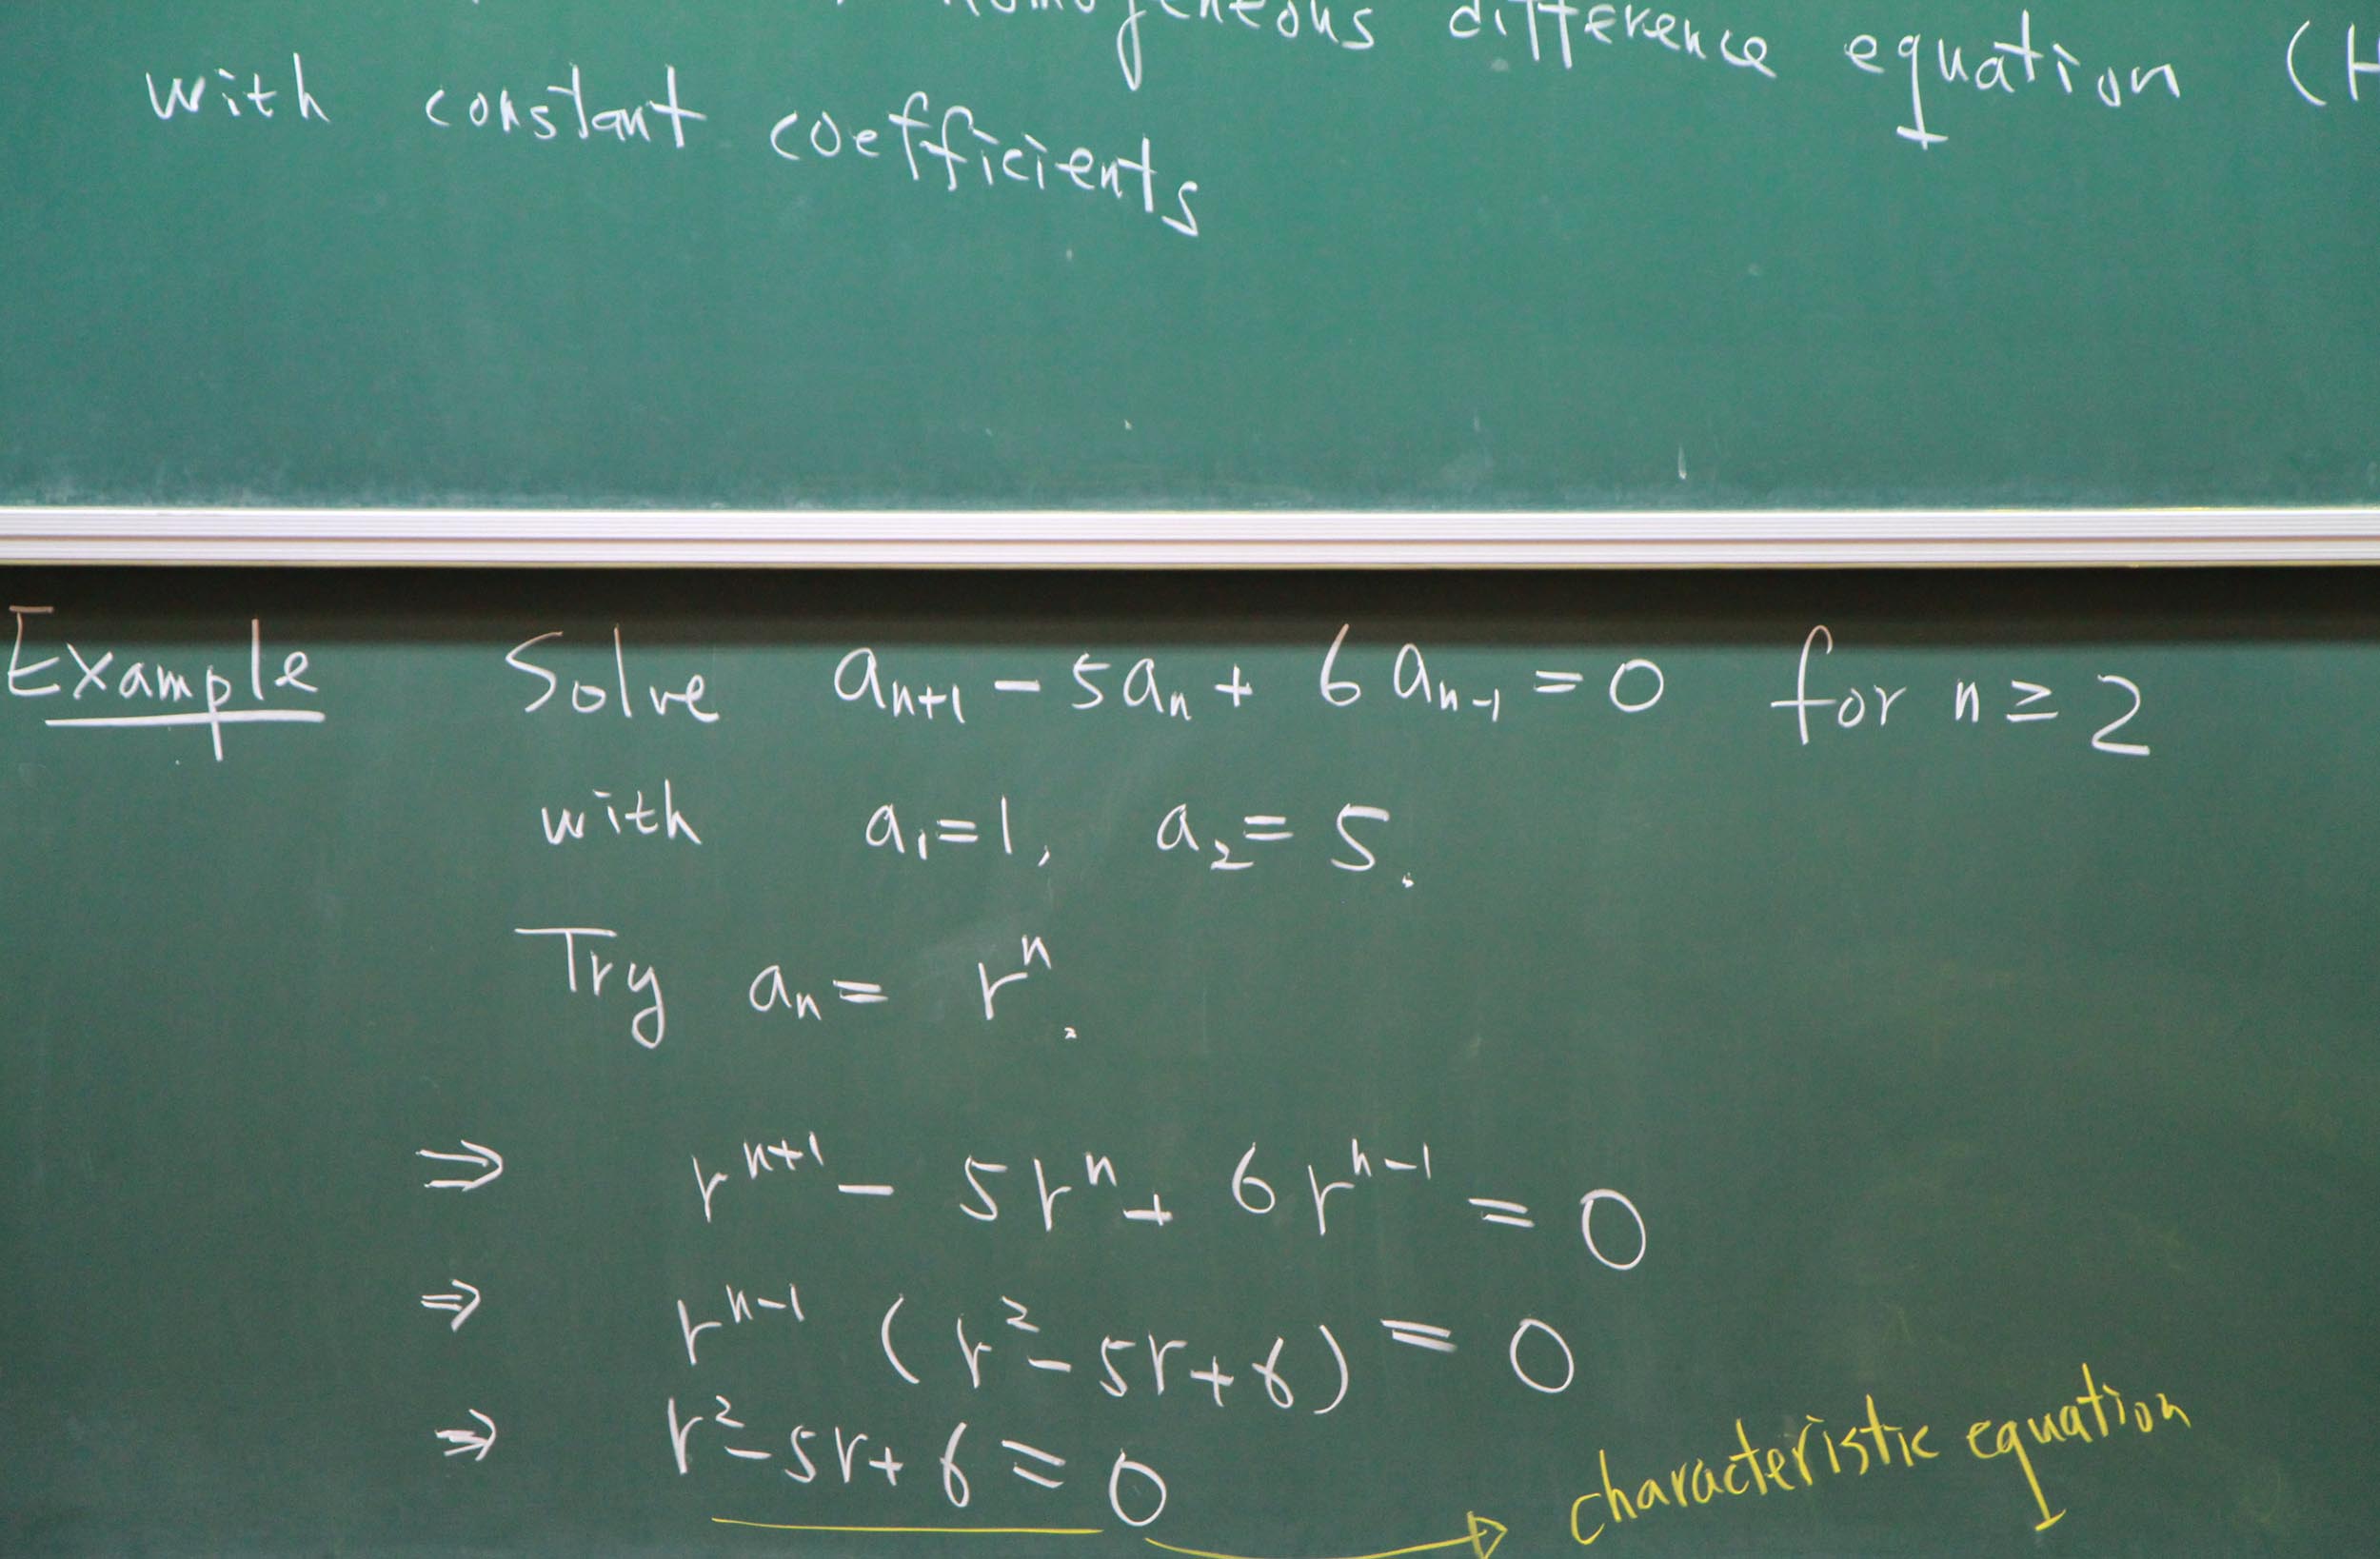 difference equation
with constant coefficients
Example Solve aₙ₊₁ - 5aₙ + 6aₙ₋₁ = 0 for n ≥ 2
with a₁ = 1, a₂ = 5.
Try aₙ = rⁿ.
⇒ rⁿ⁺¹ - 5rⁿ + 6rⁿ⁻¹ = 0
⇒ rⁿ⁻¹ (r² - 5r + 6) = 0
⇒ r² - 5r + 6 = 0 → characteristic equation